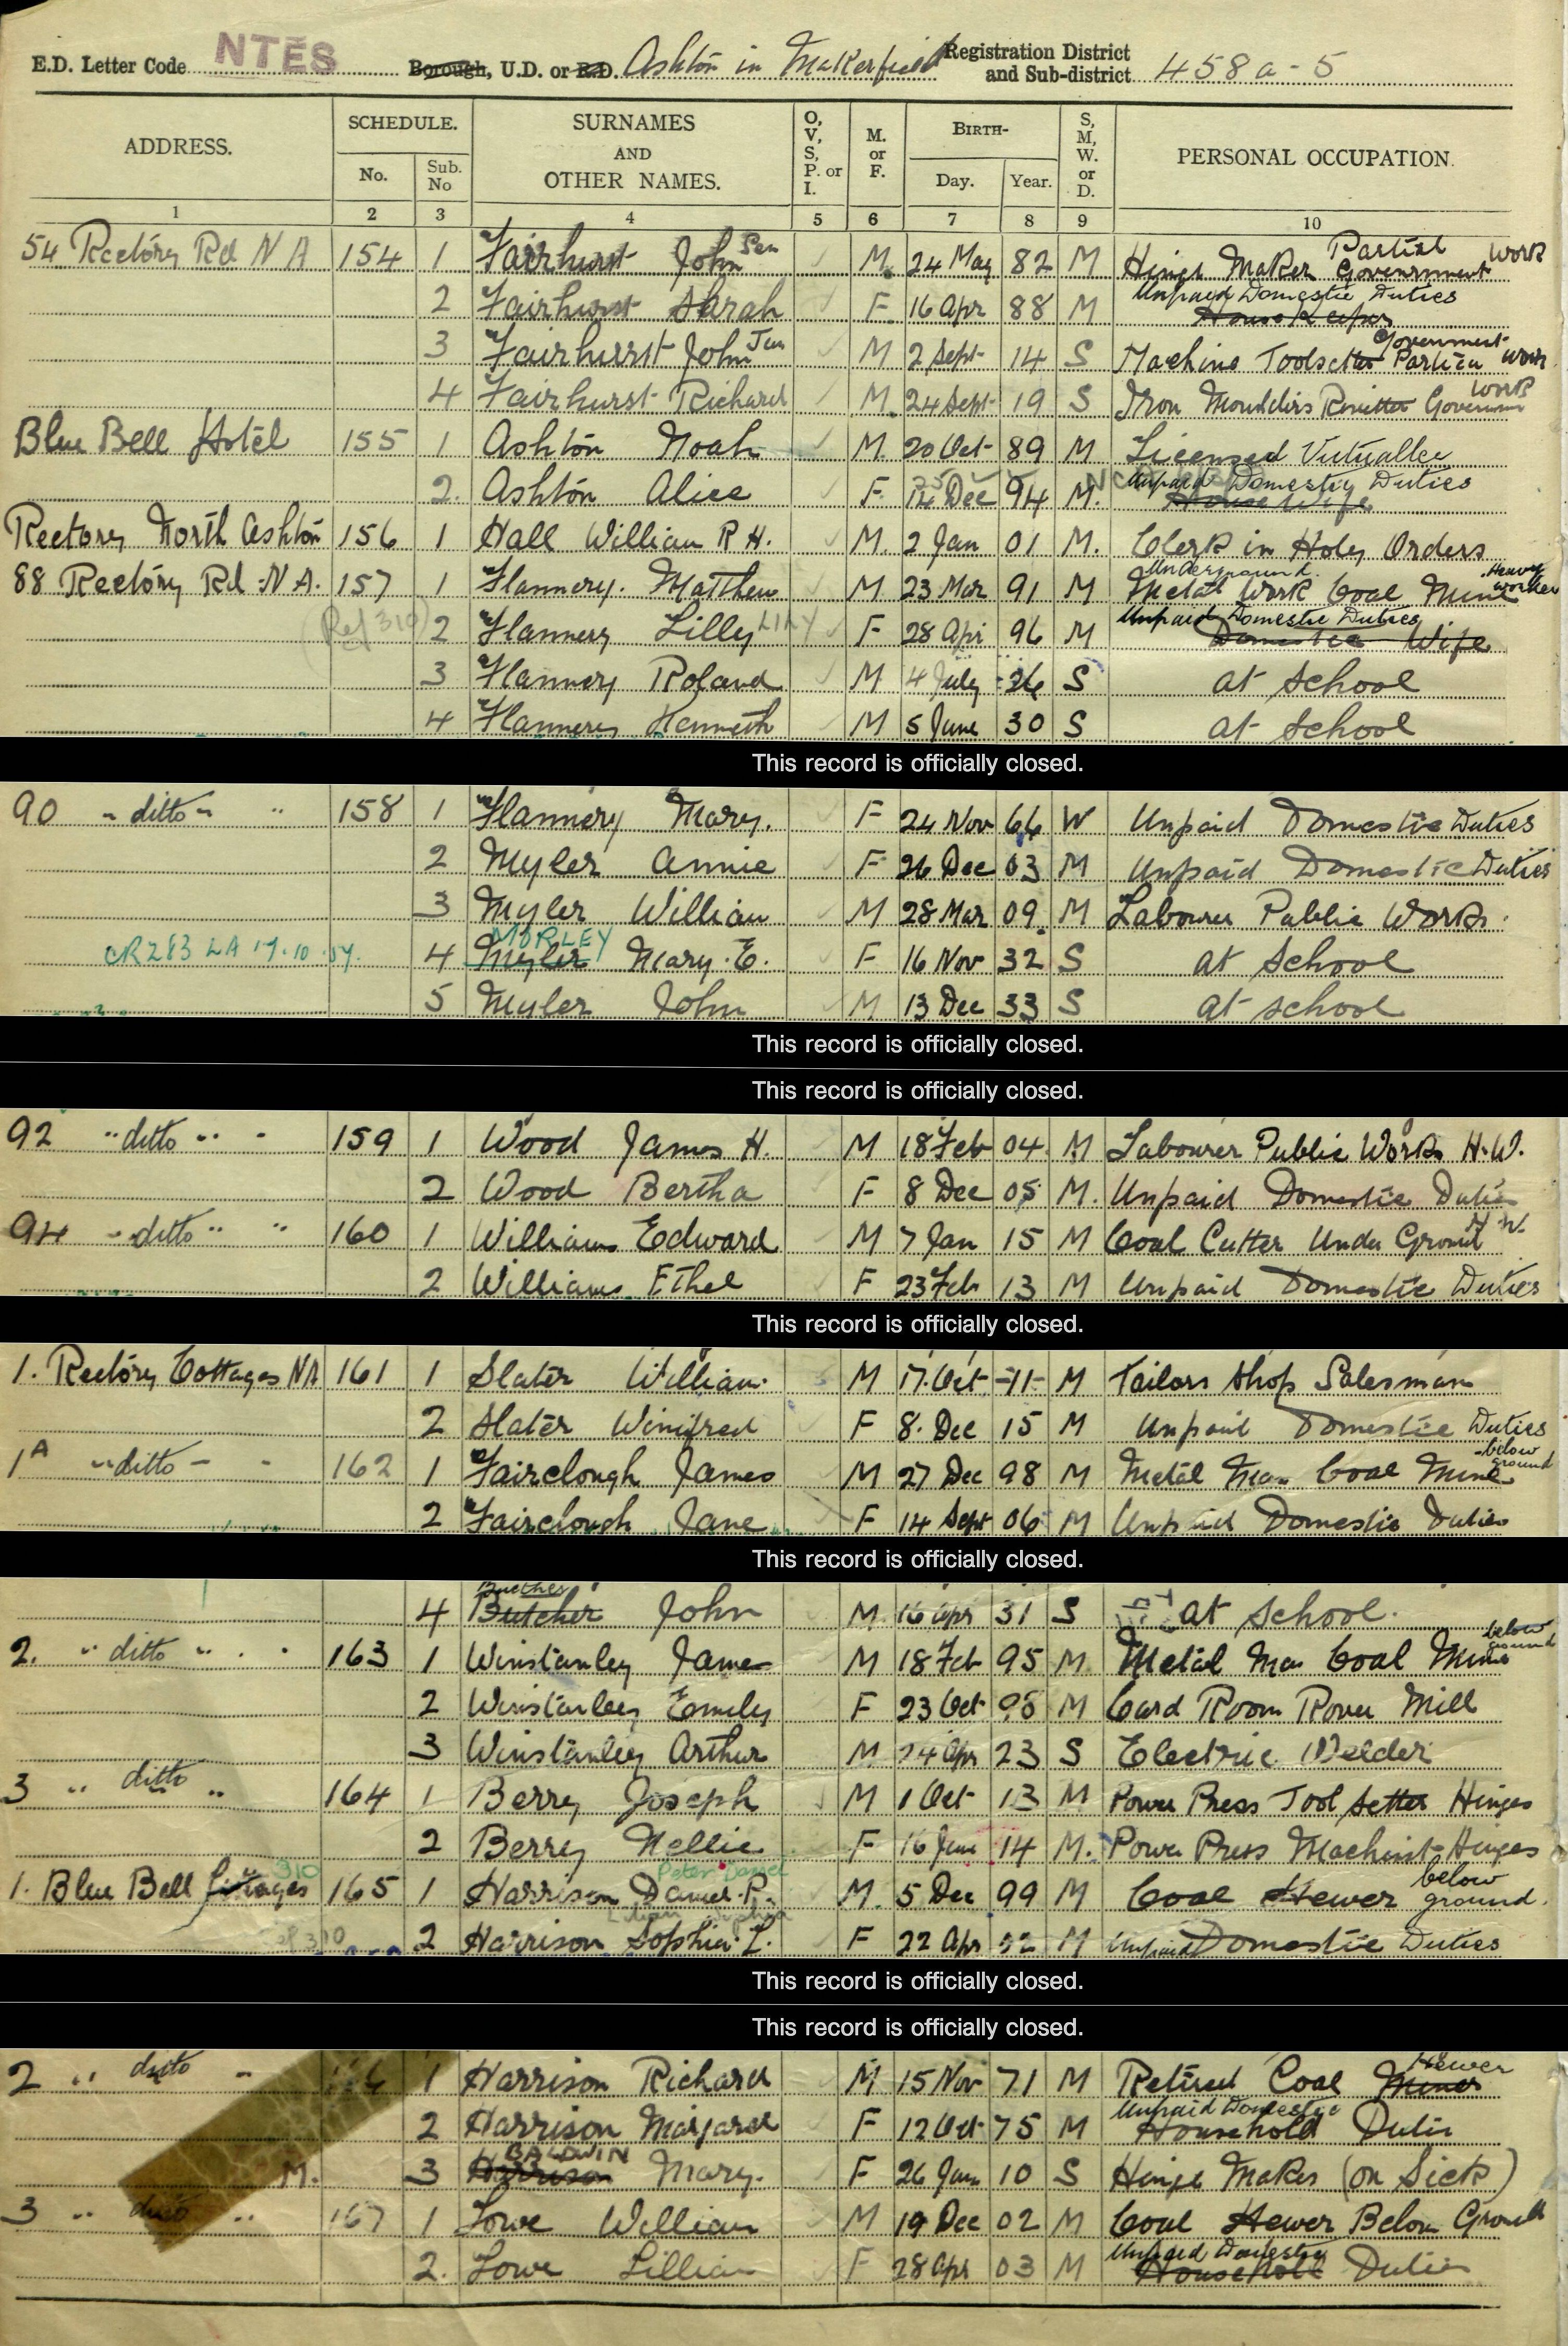 E.D. Letter Code NTES Borough, U.D. or R.D. Ashton in Makerfield Registration District and Sub-district 458a-5
ADDRESS. SCHEDULE. No. Sub. No SURNAMES AND OTHER NAMES. O, V, S, P. or I. M. or F. BIRTH- Day. Year. S, M, W. or D. PERSONAL OCCUPATION.
1 2 3 4 5 6 7 8 9 10
54 Rectory Rd N A 154 1 Fairhurst John Sen M. 24 May 82 M Hinge Maker Partial Government Work
2 Fairhurst Sarah F. 16 Apr 88 M Unpaid Domestic Duties House Keeper
3 Fairhurst John Jun M 2 Sept 14 S Machine Toolsetter Government Work
4 Fairhurst Richard M. 24 Sept 19 S Iron Moulders Work
Blue Bell Hotel 155 1 Ashton Noah M. 20 Oct 89 M Licensed Victualler
2. Ashton Alice F. 14 Dec 94 M. Unpaid Domestic Duties House Wife
Rectory North Ashton 156 1 Hall William R H. M. 2 Jan 01 M. Clerk in Holy Orders
88 Rectory Rd N.A. 157 1 Flannery. Matthew M. 23 Mar 91 M Underground Metal Work Coal Mine Heavy Worker
(Ref 310) 2 Flannery Lilly LILY F 28 Apr 96 M Unpaid Domestic Duties Domestic Wife
3 Flannery Roland M 4 July 26 S at School
4 Flannery Kenneth M 5 June 30 S at School
This record is officially closed.
90 " ditto " " 158 1 Flannery Mary. F 24 Nov 66 W Unpaid Domestic Duties
2 Myler Annie F 26 Dec 03 M Unpaid Domestic Duties
3 Myler William M 28 Mar 09 M Labourer Public Works
CR283 LA 17.10.54. 4 Myler MORLEY Mary. E. F 16 Nov 32 S at School
5 Myler John M 13 Dec 33 S at school
This record is officially closed.
This record is officially closed.
92 " ditto " " 159 1 Wood James H. M 18 Feb 04 M Labourer Public Works H.W.
2 Wood Bertha F 8 Dec 05 M. Unpaid Domestic Duties
94 " ditto " " 160 1 Williams Edward M 7 Jan 15 M Coal Cutter Under Ground H W.
2 Williams Ethel F 23 Feb 13 M Unpaid Domestic Duties
This record is officially closed.
1. Rectory Cottages NA 161 1 Slater William M 17 Oct 11 M Tailors Shop Salesman
2 Slater Winifred F 8. Dec 15 M Unpaid Domestic Duties
1A " ditto " " 162 1 Fairclough James M 27 Dec 98 M Metal Man Coal Mine below ground
2 Fairclough Jane F 14 Sept 06 M Unpaid Domestic Duties
This record is officially closed.
4 Butcher John M. 16 Apr 31 S at School.
2. " ditto " " 163 1 Winstanley James M 18 Feb 95 M. Metal Man Coal Mine below ground
2 Winstanley Emily F 23 Oct M Card Room Rover Mill
3 Winstanley Arthur M. 24 Apr 23 S Electric Welder
3 " ditto " 164 1 Berry Joseph M 1 Oct 13 M Power Press Tool Setter Hinges
2 Berry Nellie F 16 June 14 M. Power Press Machinist Hinges
1. Blue Bell Cottages 310 165 1 Harrison Daniel. P. Peter Daniel M. 5 Dec 99 M Coal Hewer below ground.
2 Harrison Sophia. L. F 22 Apr M Unpaid Domestic Duties
This record is officially closed.
This record is officially closed.
2 " ditto " 1 Harrison Richard M 15 Nov 71 M Retired Coal Miner Hewer
2 Harrison Margaret F 12 Oct 75 M Unpaid Domestic Household Duties
M. 3 Harrison BALDWIN Mary. F 26 Jan 10 S Hinge Maker (on Sick)
3 " ditto " 167 1 Lowe William M 19 Dec 02 M Coal Hewer Below Ground
2. Lowe Lillian F 28 Apr 03 M Unpaid Domestic Household Duties